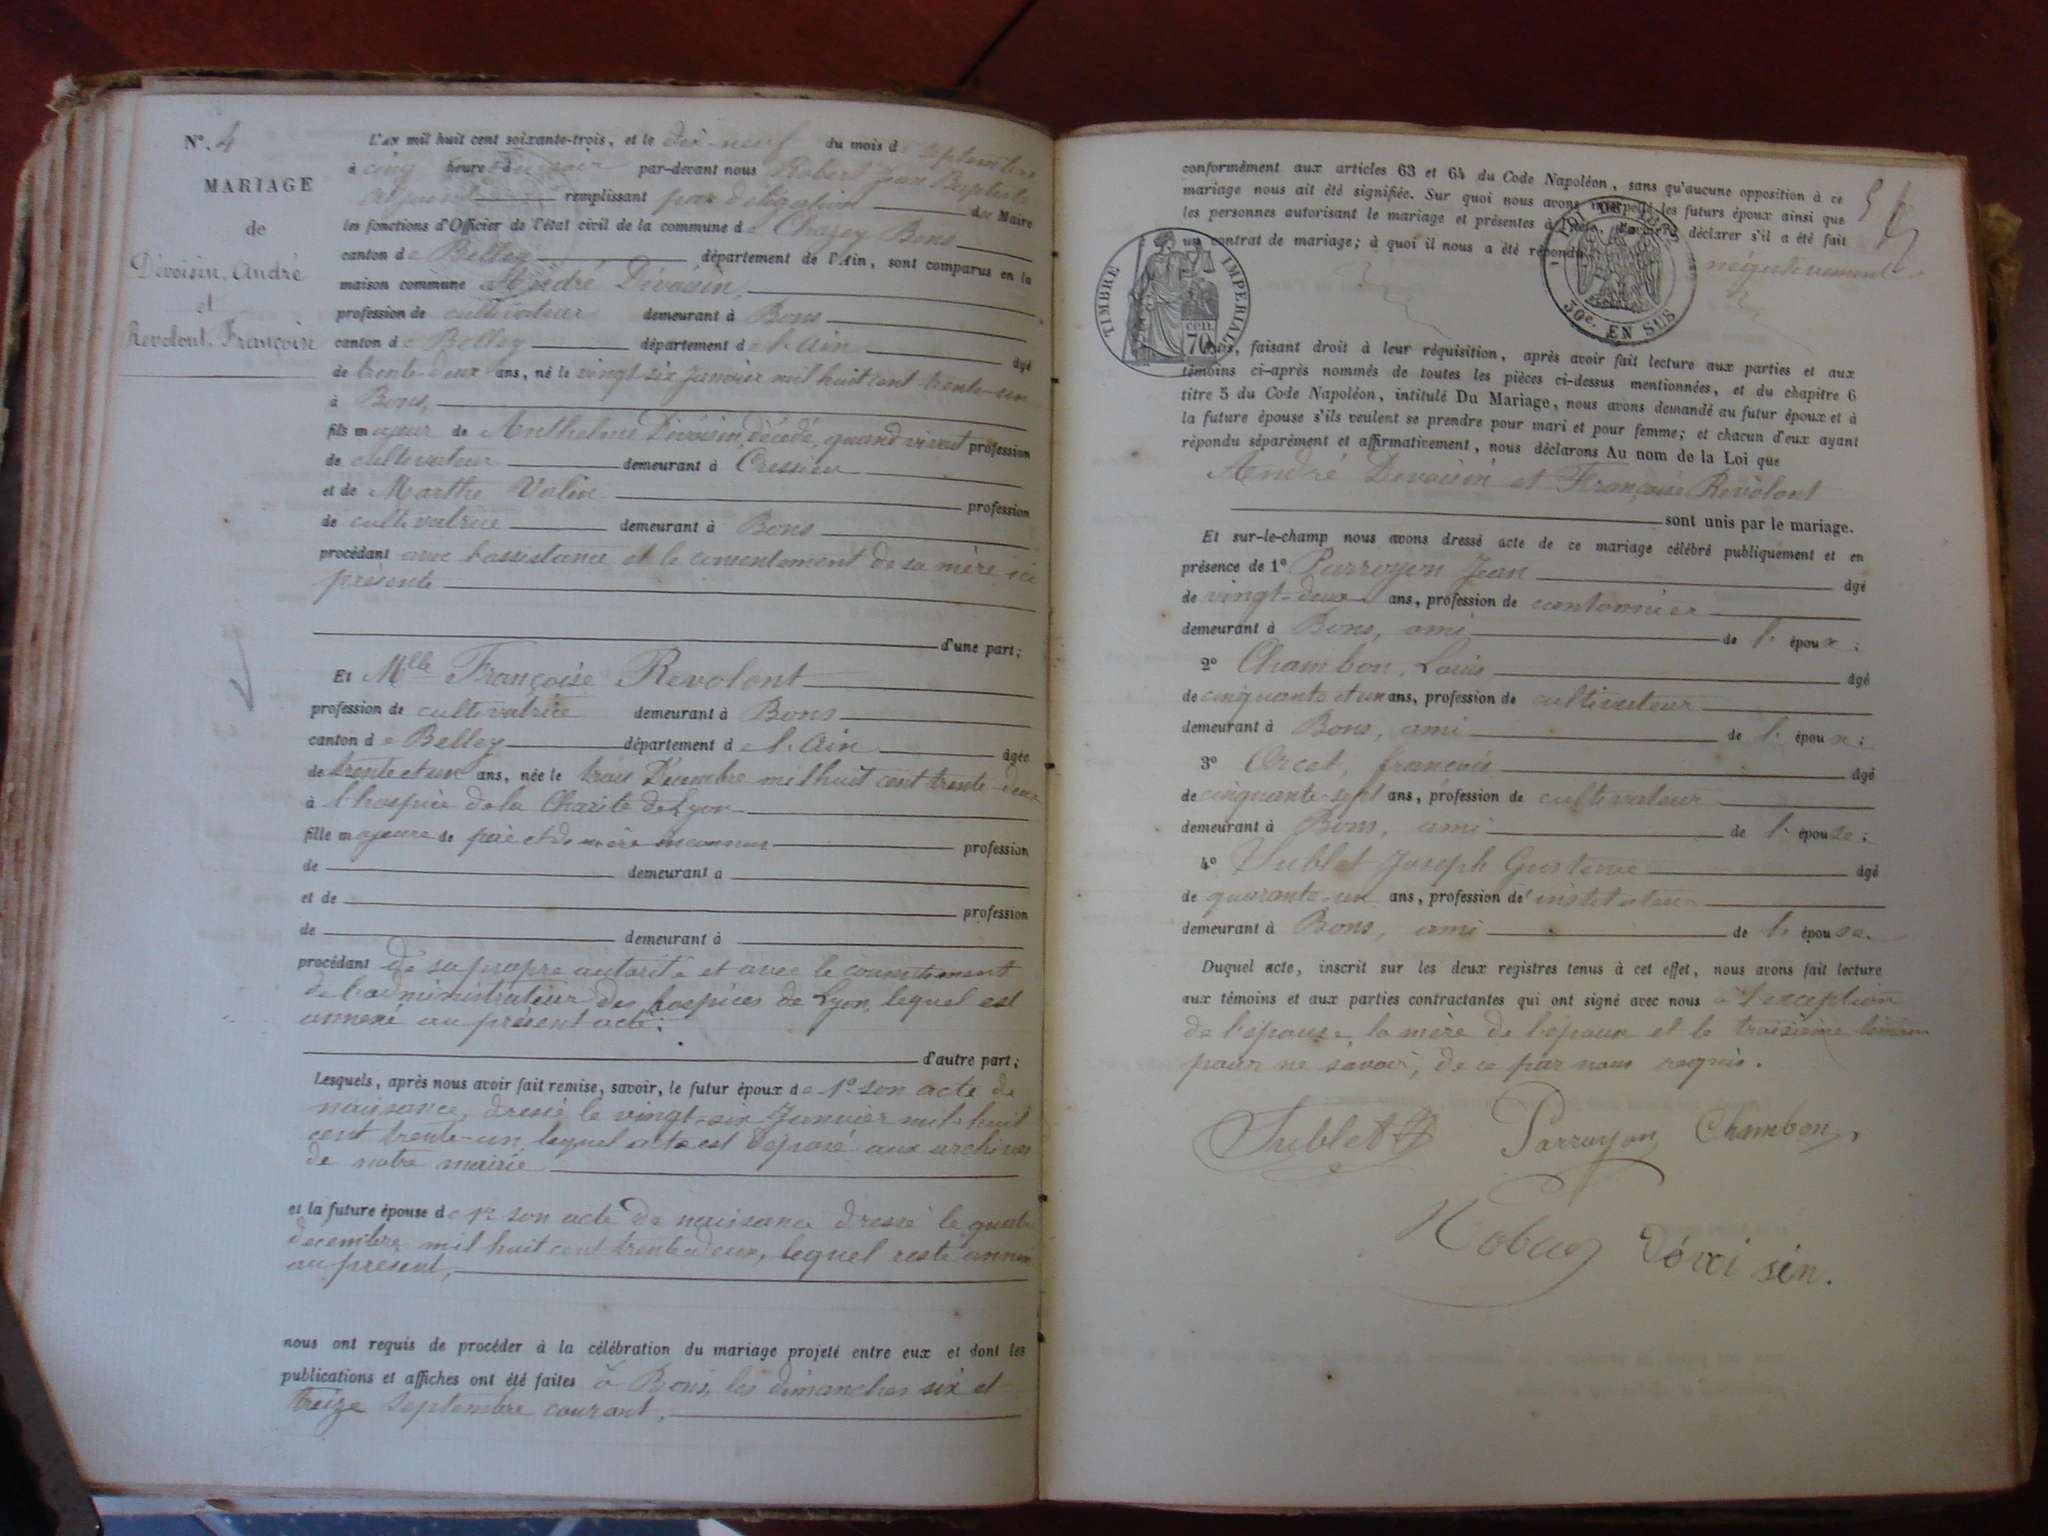 N°. 4
MARIAGE
de
Dévoisin, André
et
Revolont, Françoise
L'AN mil huit cent soixante-trois, et le dix-neuf du mois de septembre
à cinq heures du soir par-devant nous Robert Jean Baptiste
adjoint remplissant par délégation du Maire
les fonctions d'Officier de l'état civil de la commune de Chazey Bons
canton de Belley département de l'Ain, sont comparus en la
maison commune André Dévoisin,
profession de cultivateur demeurant à Bons
canton de Belley département de l'Ain âgé
de trente-deux ans, né le vingt-six Janvier mil huit cent trente-un
à Bons,
fils majeur de Anthelme Dévoisin, décédé, quand vivait profession
de cultivateur demeurant à Cressieu
et de Marthe Volin profession
de cultivatrice demeurant à Bons
procédant avec l'assistance et le consentement de sa mère ici
présente
d'une part;
Et Mlle Françoise Revolont
profession de cultivatrice demeurant à Bons
canton de Belley département de l'Ain âgée
de trente et un ans, née le trois Décembre mil huit cent trente-deux
à l'hospice de la Charité de Lyon
fille majeure de père et de mère inconnus profession
de demeurant à
et de profession
de demeurant à
procédant de sa propre autorité et avec le consentement
de l'administrateur des hospices de Lyon, lequel est
annexé au présent acte.
d'autre part;
Lesquels, après nous avoir fait remise, savoir, le futur époux de 1° son acte de
naissance, dressé le vingt-six Janvier mil huit
cent trente-un, lequel acte est déposé aux archives
de notre mairie
et la future épouse de 1° son acte de naissance dressé le quatre
décembre mil huit cent trente deux, lequel reste annexé
au présent,
nous ont requis de procéder à la célébration du mariage projeté entre eux et dont les
publications et affiches ont été faites à Bons, les dimanches six et
treize septembre courant,
conformément aux articles 63 et 64 du Code Napoléon, sans qu'aucune opposition à ce
mariage nous ait été signifiée. Sur quoi nous avons interpellé les futurs époux ainsi que
les personnes autorisant le mariage et présentes à l'acte, d'avoir à déclarer s'il a été fait
un contrat de mariage; à quoi il nous a été répondu
négativement
TIMBRE IMPERIAL
cen.
70
50c. EN SUS
Nous, faisant droit à leur réquisition, après avoir fait lecture aux parties et aux
témoins ci-après nommés de toutes les pièces ci-dessus mentionnées, et du chapitre 6
titre 5 du Code Napoléon, intitulé Du Mariage, nous avons demandé au futur époux et à
la future épouse s'ils veulent se prendre pour mari et pour femme; et chacun d'eux ayant
répondu séparément et affirmativement, nous déclarons Au nom de la Loi que
André Devoisin et Françoise Revolont
sont unis par le mariage.
Et sur-le-champ nous avons dressé acte de ce mariage célébré publiquement et en
présence de 1° Parroyon Jean âgé
de vingt-deux ans, profession de cantonnier
demeurant à Bons, ami de l'époux;
2° Chambon, Louis âgé
de cinquante et un ans, profession de cultivateur
demeurant à Bons, ami de l'époux;
3° Orcet, françois âgé
de cinquante-sept ans, profession de cultivateur
demeurant à Bons, ami de l'épouse;
4° Sublet Joseph Gustave âgé
de quarante-un ans, profession d'instituteur
demeurant à Bons, ami de l'épouse.
Duquel acte, inscrit sur les deux registres tenus à cet effet, nous avons fait lecture
aux témoins et aux parties contractantes qui ont signé avec nous à l'exception
de l'épouse, la mère de l'époux et le troisième témoin
pour ne savoir, de ce par nous requis.
Sublet Parroyon Chambon
Dévoi sin.